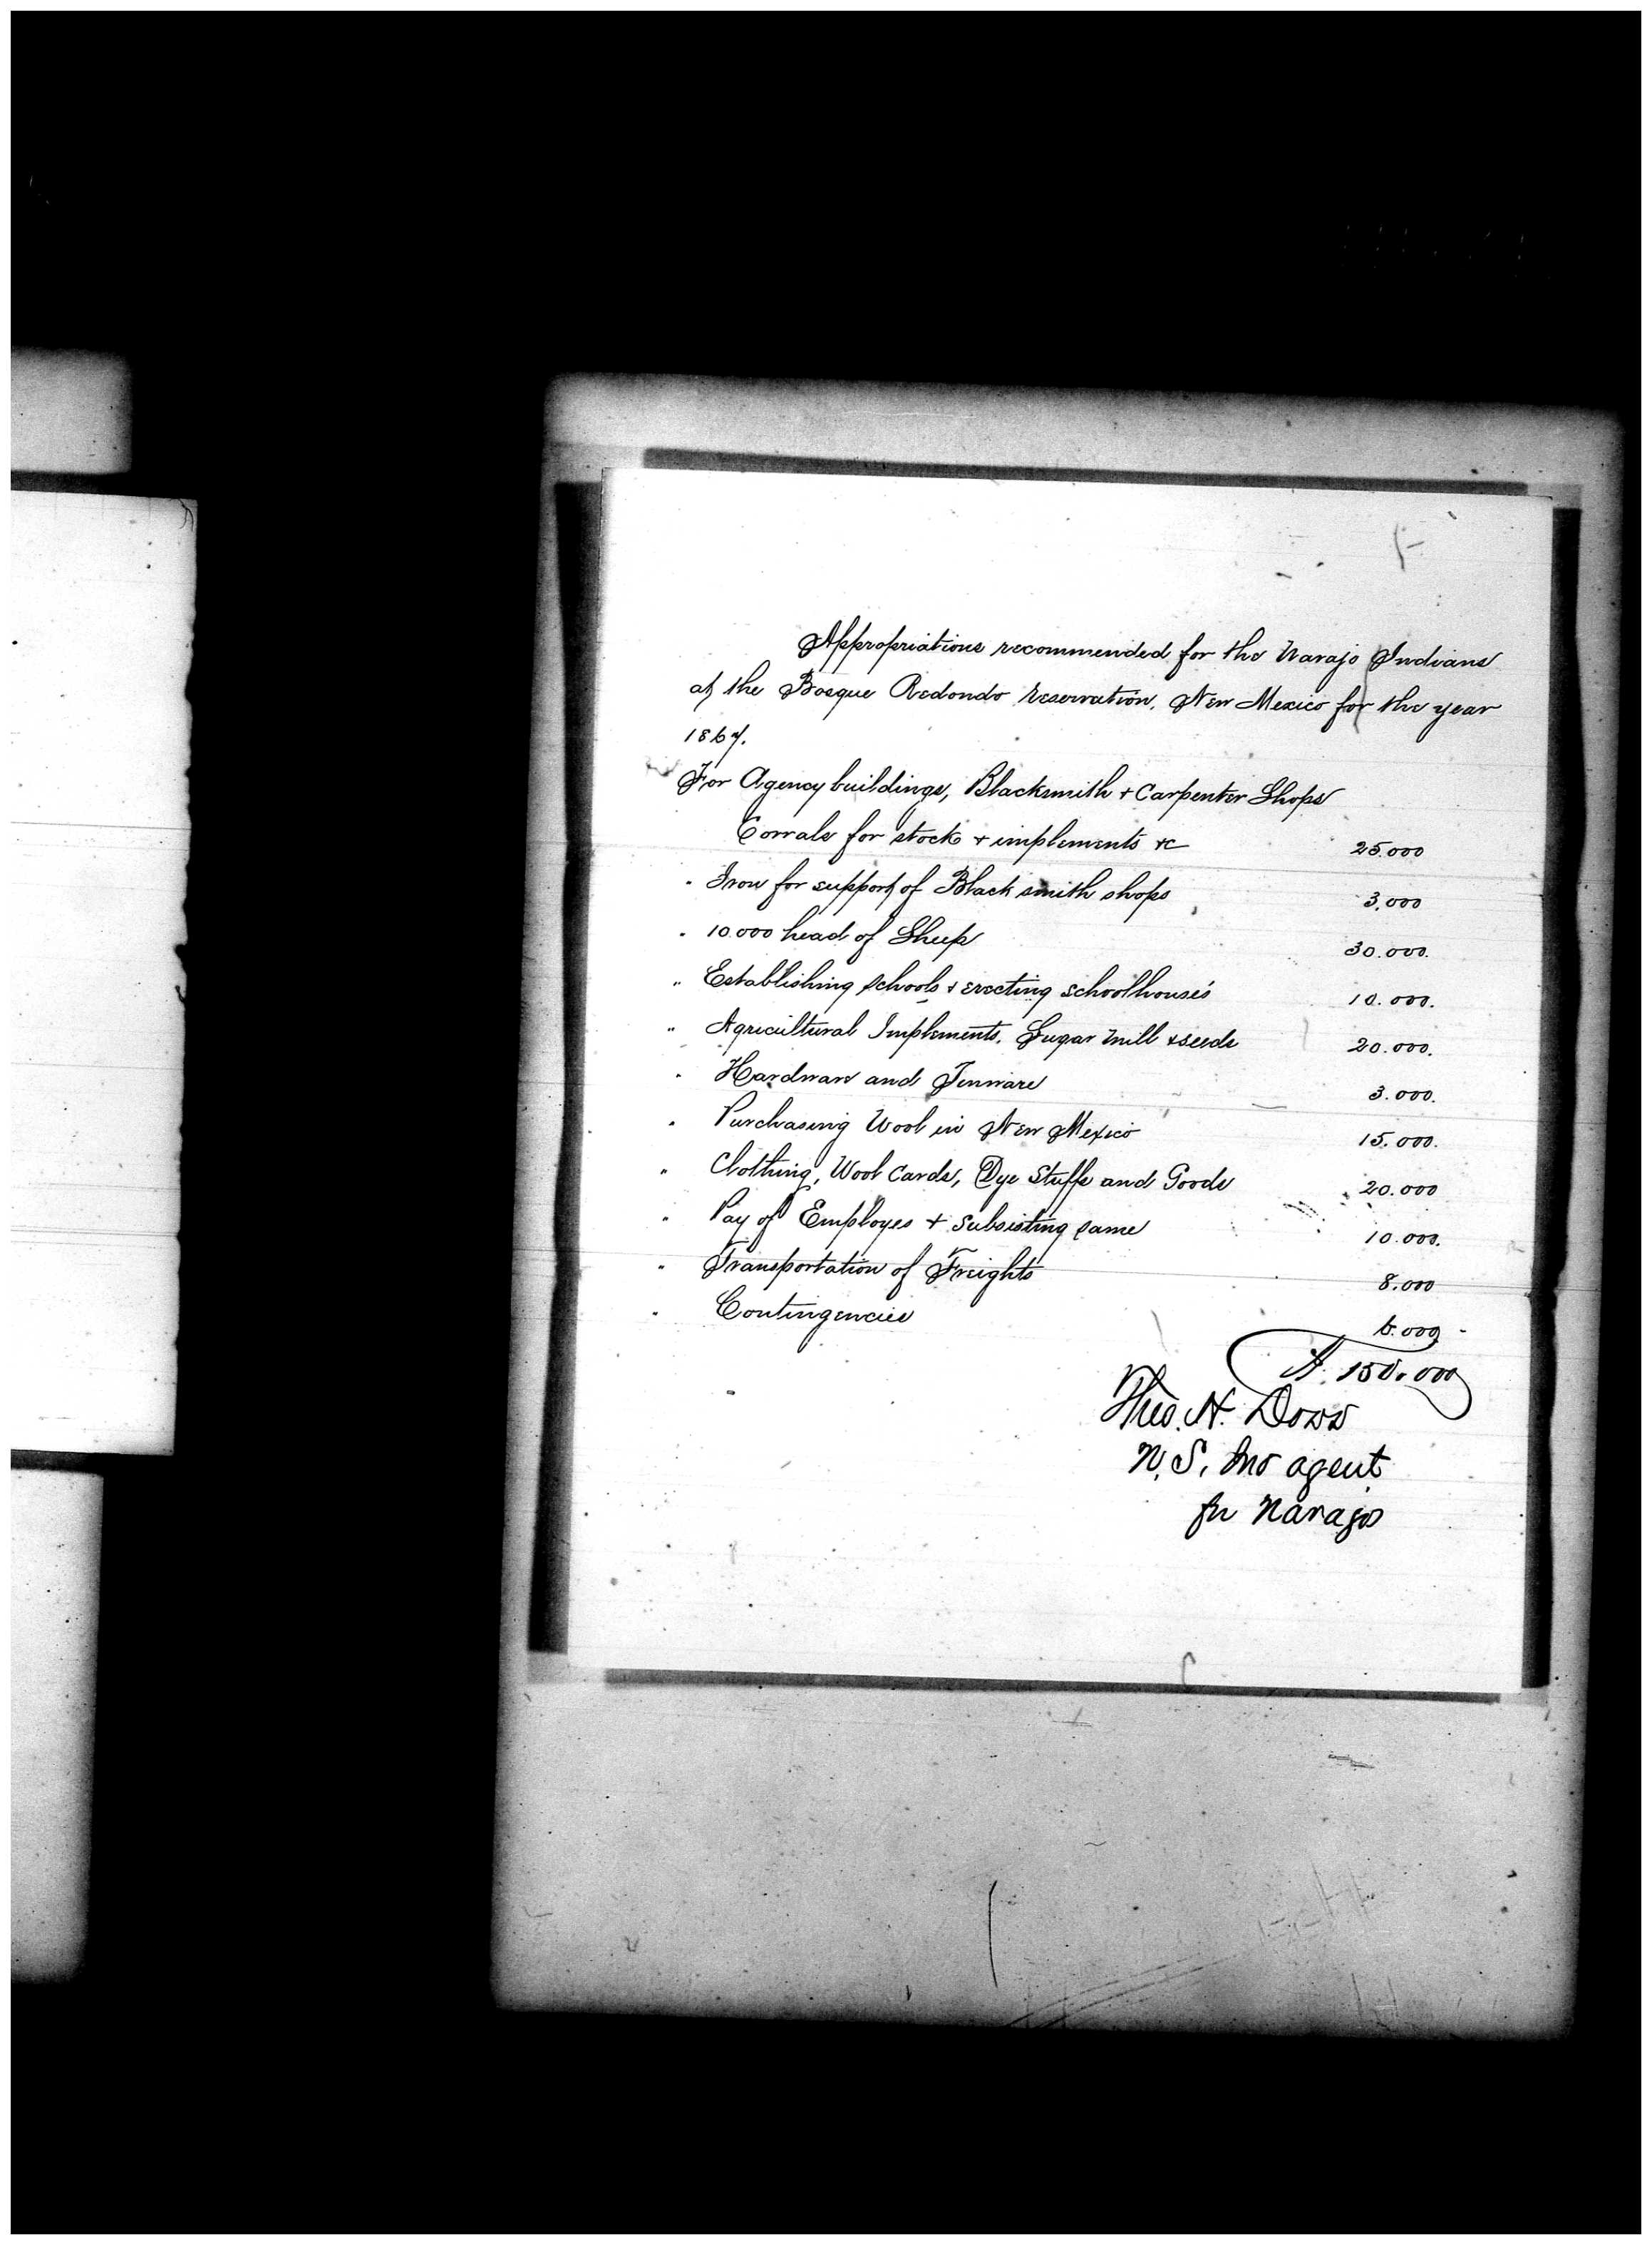 Appropriations recommended for the Navajo Indians
at the Bosque Redondo reservation, New Mexico for the year
1867.
For Agency buildings, Blacksmith + Carpenter Shops
Corrals for stock + implements &c 25.000
" Iron for support of Black smith shops 3.000
" 10.000 head of Sheep 30.000.
" Establishing schools + erecting schoolhouses 10.000.
" Agricultural Implements, Sugar mill + seeds 20.000.
" Hardware and Tinware 3.000.
" Purchasing Wool in New Mexico 15.000.
" Clothing, Wool Cards, Dye Stuffs and Goods 20.000
" Pay of Employes + subsisting same 10.000.
" Transportation of Freights 8.000
" Contingencies 6.000
$. 150.000
Theo. H. Dodd
U.S. Ind agent
for Navajos